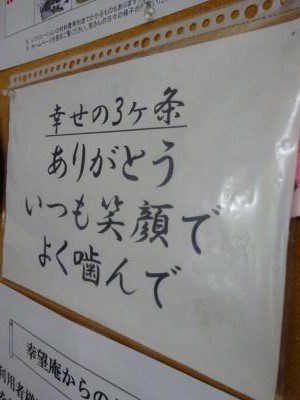 幸せの3ヶ条
ありがとう
いつも笑顔で
よく噛んで
幸望庵からの
利用者様